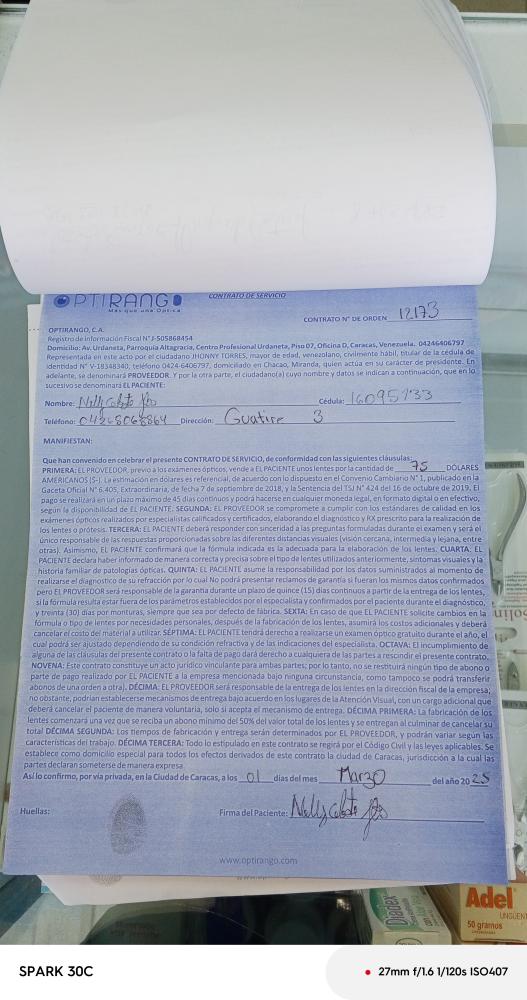 OPTIRANGO
Más que una Óptica
CONTRATO DE SERVICIO
CONTRATO N° DE ORDEN 12173
OPTIRANGO, C.A.
Registro de Información Fiscal N° J-505868454
Domicilio: Av. Urdaneta, Parroquia Altagracia, Centro Profesional Urdaneta, Piso 07, Oficina D, Caracas, Venezuela. 04246406797
Representada en este acto por el ciudadano JHONNY TORRES, mayor de edad, venezolano, civilmente hábil, titular de la cédula de
identidad N° V-18348340, teléfono 0424-6406797, domiciliado en Chacao, Miranda, quien actúa en su carácter de presidente. En
adelante, se denominará PROVEEDOR. Y por la otra parte, el ciudadano(a) cuyo nombre y datos se indican a continuación, que en lo
sucesivo se denominará EL PACIENTE:
Nombre: Nelly Cédula: 16095733
Teléfono: 04268068864 Dirección: Guatire 3
MANIFIESTAN:
Que han convenido en celebrar el presente CONTRATO DE SERVICIO, de conformidad con las siguientes cláusulas:
PRIMERA: EL PROVEEDOR, previo a los exámenes ópticos, vende a EL PACIENTE unos lentes por la cantidad de 75 DÓLARES
AMERICANOS ($-). La estimación en dólares es referencial, de acuerdo con lo dispuesto en el Convenio Cambiario N° 1, publicado en la
Gaceta Oficial N° 6.405, Extraordinaria, de fecha 7 de septiembre de 2018, y la Sentencia del TSJ N° 424 del 16 de octubre de 2019. El
pago se realizará en un plazo máximo de 45 días continuos y podrá hacerse en cualquier moneda legal, en formato digital o en efectivo,
según la disponibilidad de EL PACIENTE. SEGUNDA: EL PROVEEDOR se compromete a cumplir con los estándares de calidad en los
exámenes ópticos realizados por especialistas calificados y certificados, elaborando el diagnóstico y RX prescrito para la realización de
los lentes o prótesis. TERCERA: EL PACIENTE deberá responder con sinceridad a las preguntas formuladas durante el examen y será el
único responsable de las respuestas proporcionadas sobre las diferentes distancias visuales (visión cercana, intermedia y lejana, entre
otras). Asimismo, EL PACIENTE confirmará que la fórmula indicada es la adecuada para la elaboración de los lentes. CUARTA: EL
PACIENTE declara haber informado de manera correcta y precisa sobre el tipo de lentes utilizados anteriormente, síntomas visuales y la
historia familiar de patologías ópticas. QUINTA: EL PACIENTE asume la responsabilidad por los datos suministrados al momento de
realizarse el diagnostico de su refracción por lo cual No podrá presentar reclamos de garantía si fueran los mismos datos confirmados
pero EL PROVEEDOR será responsable de la garantía durante un plazo de quince (15) días continuos a partir de la entrega de los lentes,
si la fórmula resulta estar fuera de los parámetros establecidos por el especialista y confirmados por el paciente durante el diagnóstico,
y treinta (30) días por monturas, siempre que sea por defecto de fábrica. SEXTA: En caso de que EL PACIENTE solicite cambios en la
fórmula o tipo de lentes por necesidades personales, después de la fabricación de los lentes, asumirá los costos adicionales y deberá
cancelar el costo del material a utilizar. SÉPTIMA: EL PACIENTE tendrá derecho a realizarse un examen óptico gratuito durante el año, el
cual podrá ser ajustado dependiendo de su condición refractiva y de las indicaciones del especialista. OCTAVA: El incumplimiento de
alguna de las cláusulas del presente contrato o la falta de pago dará derecho a cualquiera de las partes a rescindir el presente contrato.
NOVENA: Este contrato constituye un acto jurídico vinculante para ambas partes; por lo tanto, no se restituirá ningún tipo de abono o
parte de pago realizado por EL PACIENTE a la empresa mencionada bajo ninguna circunstancia, como tampoco se podrá transferir
abonos de una orden a otra). DÉCIMA: EL PROVEEDOR será responsable de la entrega de los lentes en la dirección fiscal de la empresa;
no obstante, podrían establecerse mecanismos de entrega bajo acuerdo en los lugares de la Atención Visual, con un cargo adicional que
deberá cancelar el paciente de manera voluntaria, solo si acepta el mecanismo de entrega. DÉCIMA PRIMERA: La fabricación de los
lentes comenzará una vez que se reciba un abono mínimo del 50% del valor total de los lentes y se entregan al culminar de cancelar su
total DÉCIMA SEGUNDA: Los tiempos de fabricación y entrega serán determinados por EL PROVEEDOR, y podrán variar según las
características del trabajo. DÉCIMA TERCERA: Todo lo estipulado en este contrato se regirá por el Código Civil y las leyes aplicables. Se
establece como domicilio especial para todos los efectos derivados de este contrato la ciudad de Caracas, jurisdicción a la cual las
partes declaran someterse de manera expresa.
Así lo confirmo, por vía privada, en la Ciudad de Caracas, a los 01 días del mes Marzo del año 2025
Huellas:
Firma del Paciente: Nelly
www.optirango.com
Adel
UNGÜENT
50 gramos
SPARK 30C
27mm f/1.6 1/120s ISO407